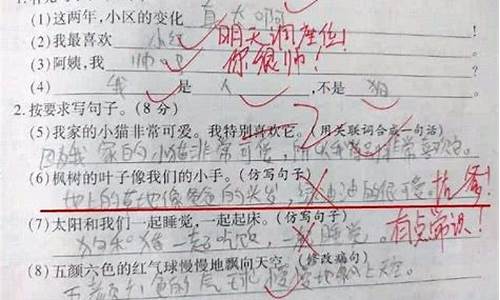 (1)这两年,小区的变化真大啊
(2)我最喜欢 小红 明天调座位!
(3)阿姨,我 帅吧 你很帅!
(4) 我 是 人 ,不是 狗
2.按要求写句子。(8分)
(5)我家的小猫非常可爱。我特别喜欢它。(用关联词合成一句话)
因为我家的小猫非常可爱,所以我非常喜欢它。
(6)枫树的叶子像我们的小手。(仿写句子)
地上的草地像爸爸的头发,绿油油的很可爱。
(7)太阳和我们一起睡觉,一起起床。(仿写句子)
狗和猪一起吃饭,一起睡觉。 有点常识!
(8)五颜六色的红气球慢慢地飘向天空。(修改病句)
五颜六色的气球慢慢地飘上天空。